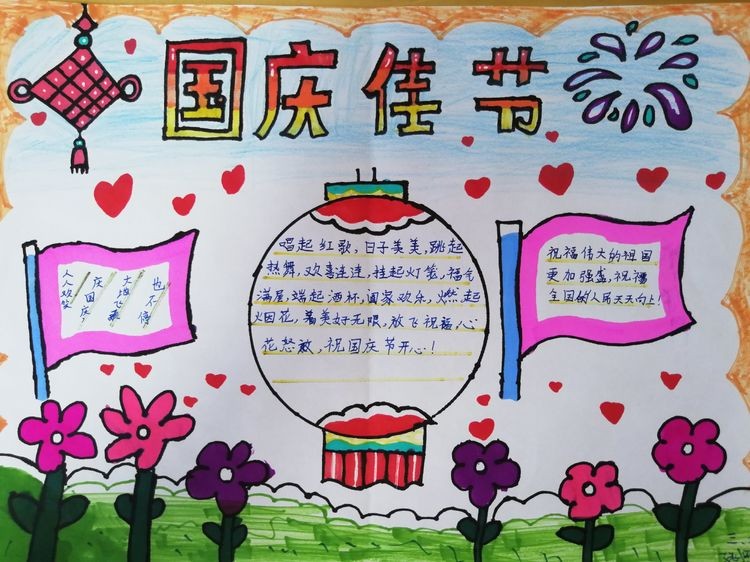 国庆佳节
人人欢笑
庆国庆!
大
也不停
唱起红歌,日子美美,跳起
热舞,欢喜连连,挂起灯笼,福气
满屋,端起酒杯,阖家欢乐,燃起
烟花,着美好无限,放飞祝福,心
花怒放,祝国庆节开心!
祝福伟大的祖国
更加强盛,祝福
全国的人民天天向上!